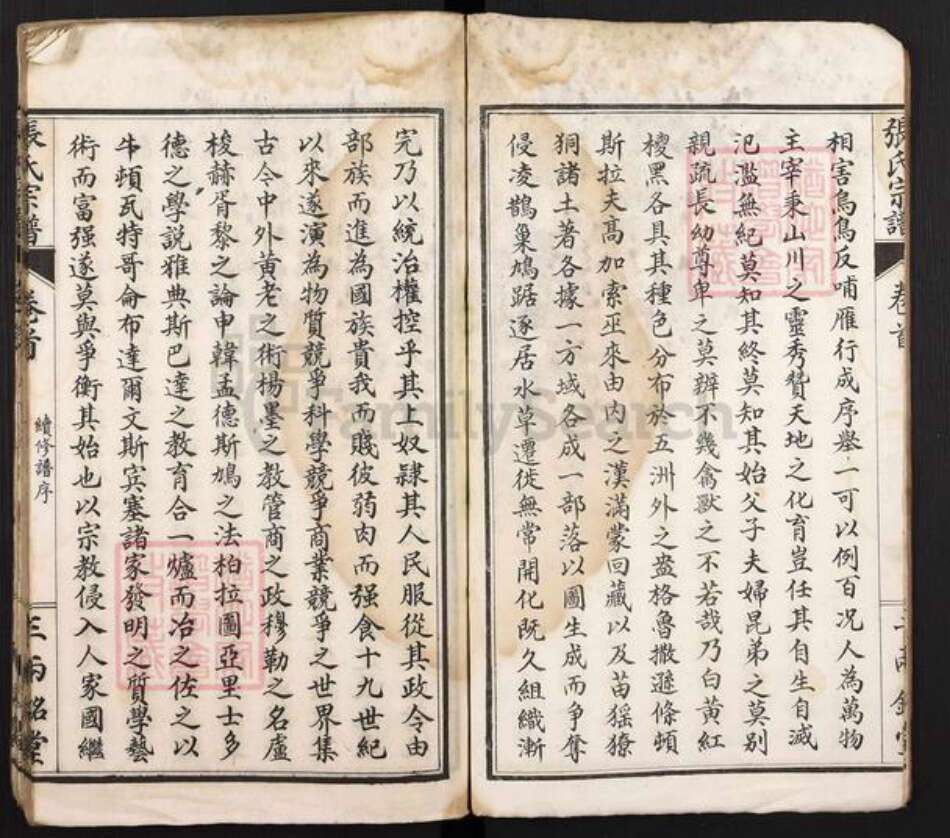 張氏宗譜 卷首
相害烏鳥反哺雁行成序舉一可以例百况人為萬物
主宰秉山川之靈秀贊天地之化育豈任其自生自滅
氾濫無紀莫知其終莫知其始父子夫婦昆弟之莫别
親疏長幼尊卑之莫辨不幾禽獸之不若哉乃白黃紅
椶黑各具其種色分布於五洲外之盎格魯撒遜條頓
斯拉夫高加索巫來由内之漢滿蒙回藏以及苗猺獠
狪諸土著各據一方域各成一部落以圖生成而争奪
侵凌鵲巢鳩踞逐居水草遷徙無常開化既久組織漸
完乃以統治權控乎其上奴隸其人民服從其政令由
部族而進為國族貴我而賤彼弱肉而强食十九世紀
以來遂演為物質競爭科學競爭商業競爭之世界集
古今中外黃老之術楊墨之教管商之政穆勒之名盧
梭赫胥黎之論申韓孟德斯鳩之法柏拉圖亞里士多
德之學説雅典斯巴達之教育合一爐而冶之佐之以
牛頓瓦特哥侖布達爾文斯賓塞諸家發明之質學藝
術而富强遂莫與爭衡其始也以宗教侵入人家國繼
張氏宗譜 卷首 續修譜序 三兩銘堂
FamilySearch